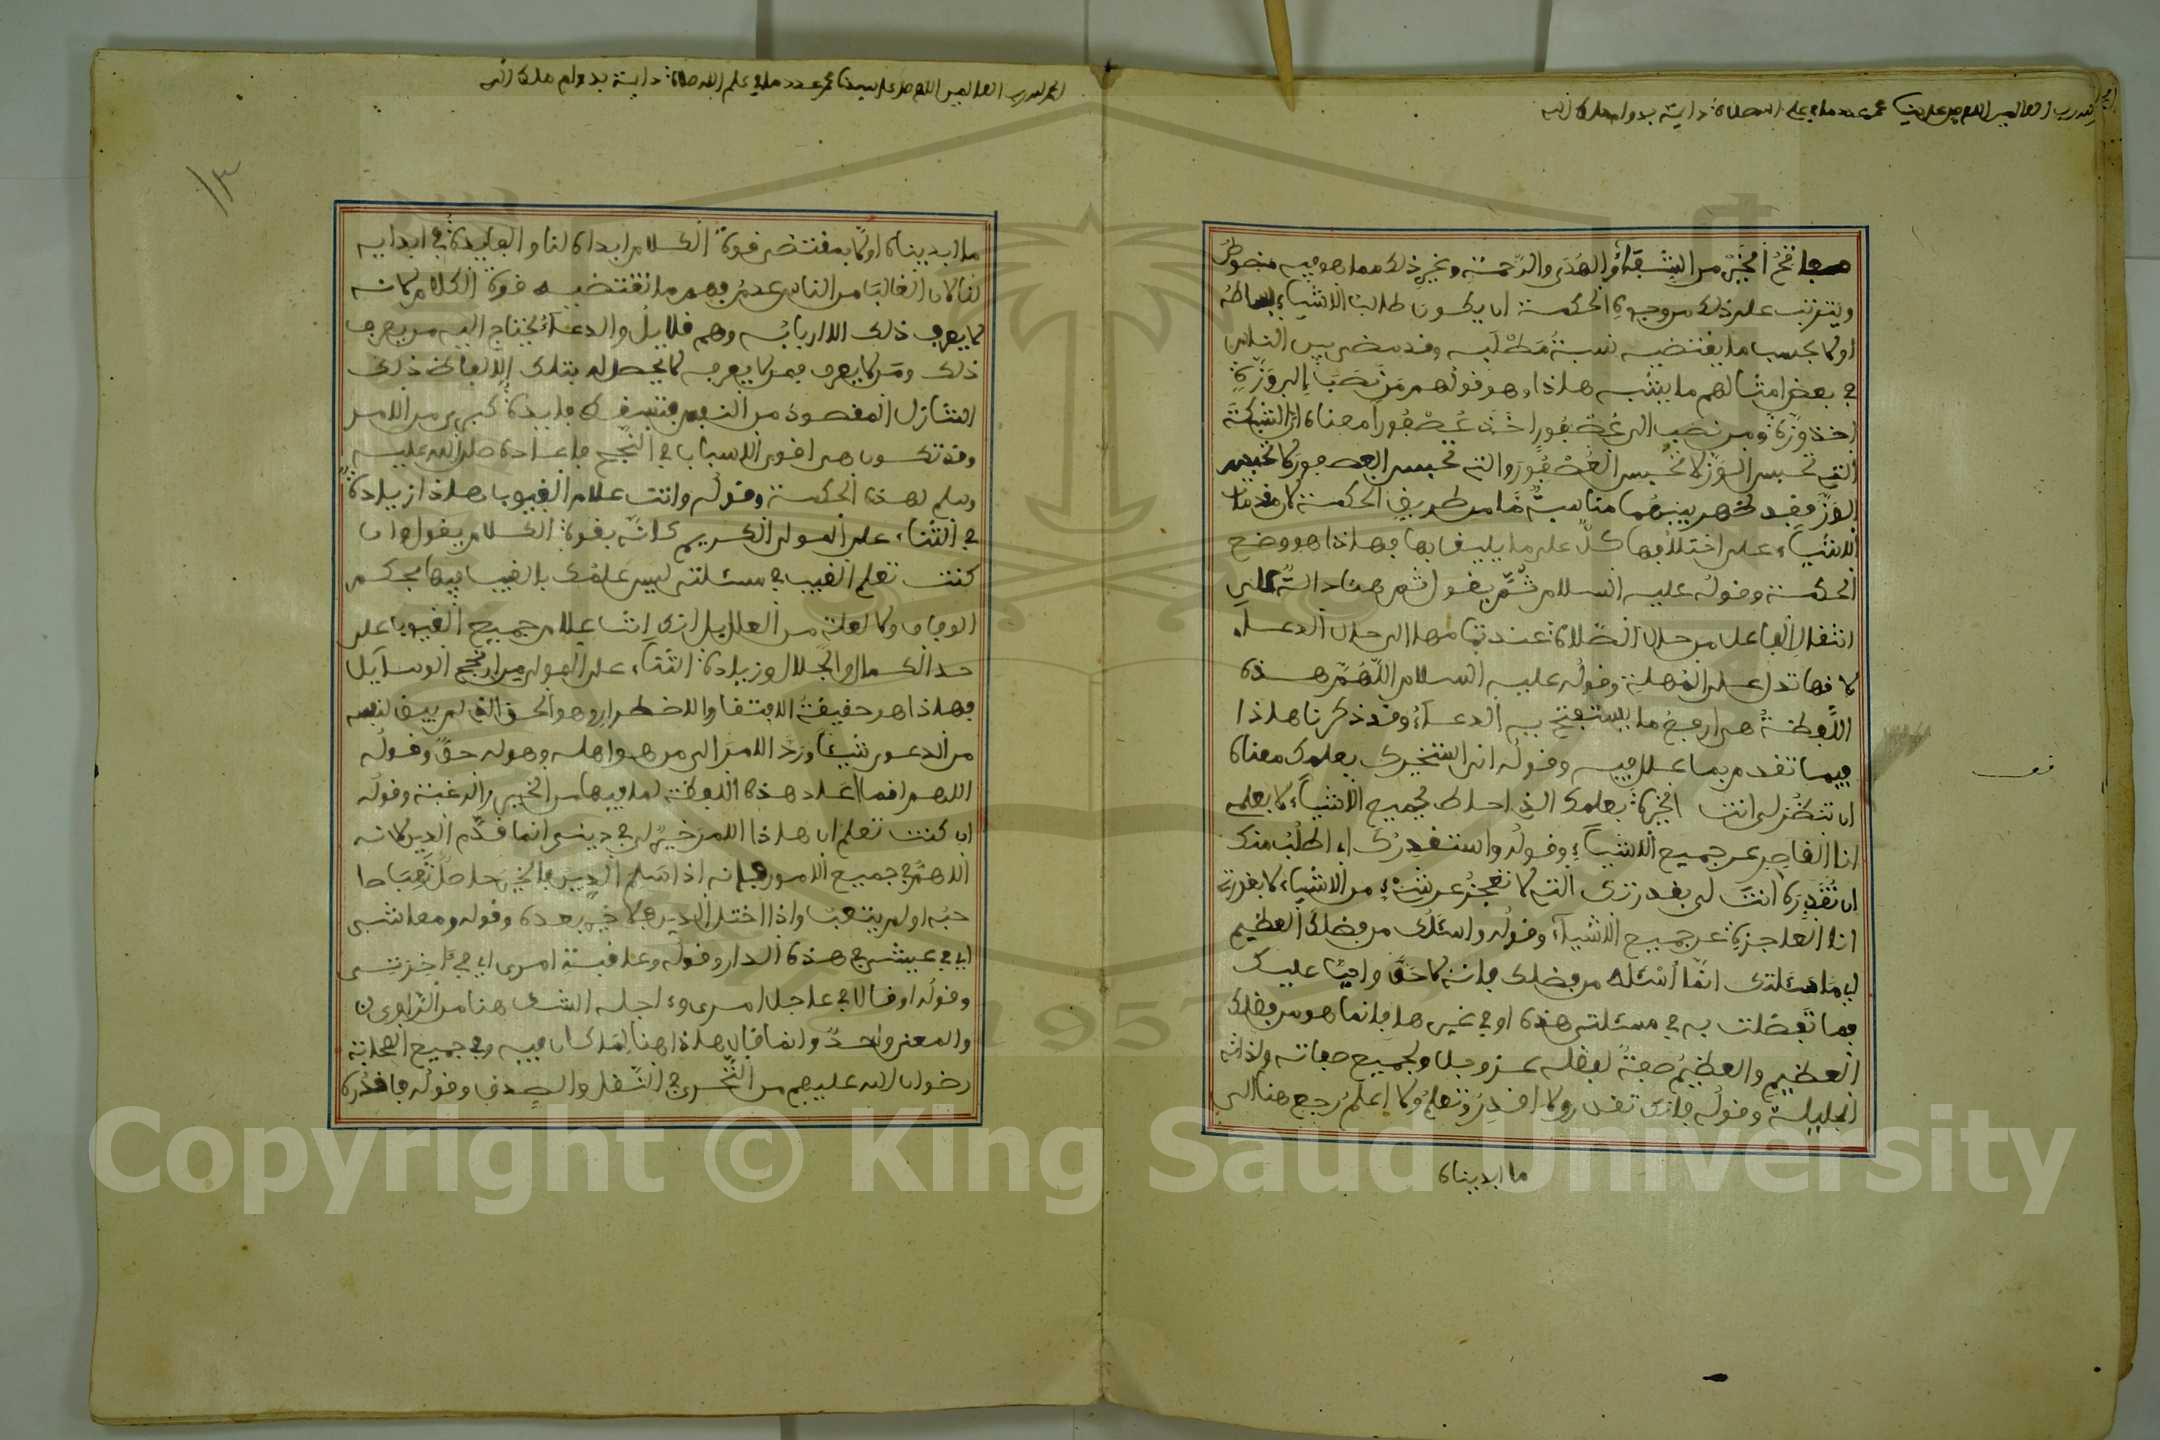 الحمد لله رب العالمين اللهم صل على سيدنا محمد عدد ما في علم الله صلاة دائمة بدوام ملك الله
مفاتح الخير من الشفقة والهدى والرحمة وغير ذلك مما هو فيه منصوص
ويترتب على ذلك من وجوه الحكمة ان يكون طالب الاشياء بساطه
اولا بحسب ما يقتضيه نسبة مطلبه وقد مضى بين الناس
في بعض امثالهم ما يشبه هاذا وهو قولهم من نصب الى وزة
اخذ وزة ومن نصب الى عصفور اخذ عصفورا معناه ان الشبكة
التي تحبس الوز لا تحبس العصفور والتي تحبس العصفور لا تحبس
الوز فقد ظهر بينهما مناسبة ما من طريق الحكمة لان مقدمات
الاشياء على اختلافها كل على ما يليق بها فهاذا هو وضع
الحكمة وقوله عليه السلام ثم يقول ثم هنا دالة على
انتقال الفاعل من حال الصلاة عند تمامها الى حال الدعاء
لا فها تدل على المهلة وقوله عليه السلام اللهم هذه
اللفظة هي ارفع ما يستفتح به الدعاء وقد ذكرنا هاذا
فيما تقدم بما علل فيه وقوله اني استخيرك بعلمك معناه
ان تنظر لي انت الخيرة بعلمك الذي احاط بجميع الاشياء لا بعلمي
انا القاصر عن جميع الاشياء وقوله واستقدرك اي اطلب منك
ان تقدره انت لي بقدرتك التي لا تعجز عن شيء من الاشياء لا بقدرتي
انا العاجزة عن جميع الاشياء وقوله واسئلك من فضلك العظيم
اي ما مسئلتي انما اسئلك من فضلك فانه لا حق واجب عليك
فما تفضلت به في مسئلتي هذه او في غيرها فانما هو من فضلك
العظيم والعظيم صفة لفضله عز وجل ولجميع صفاته ولذاته
الجليلة وقوله فانك تقدر ولا اقدر وتعلم ولا اعلم رجع هنا الى
ما ابديناه
الحمد لله رب العالمين اللهم صل على سيدنا محمد عدد ما في علم الله صلاة دائمة بدوام ملك الله
١٣
ما ابديناه اولا بمقتضى قوة الكلام ابداه لنا والفايدة في ابدايه
لنا لان الغالب من الناس عدم فهم ما تقتضيه قوة الكلام لانه
لا يعرف ذلك الا اربابه وهم قلايل والدعاء يحتاج اليه من يعرف
ذلك ومن لا يعرف فمن لا يعرفه لا يحصل له بتلك الالفاظ ذلك
التنازل المقصود من النفس فتبقى فايدة كبرى من الامر
وقد تكون هي اقوى الاسباب في النجح فاعاده صلى الله عليه
وسلم لهذه الحكمة وقوله وانت علام الغيوب هاذا زيادة
في الثناء على المولى الكريم كانه بقوة الكلام يقول ان
كنت تعلم الغيب في مسئلتي ليس علمك بالغيب فيها بحكم
الوفاق ولا لعلة من العلل بل انك انت علام جميع الغيوب على
حد الكمال والجلال وزيادة الثناء على المولى من انجح الوسايل
فهاذا هو حقيقة الافتقار والاضطرار وهو الحق الذي لم يبق لنفسه
من الدعوى شيئا ورد الامر الى من هو اهله وهو له حق وقوله
اللهم انما اعاد هذه اللفظة لما فيها من الخير والرغبة وقوله
ان كنت تعلم ان هاذا الامر خير لي في ديني انما قدم الدين لانه
الاهم في جميع الامور فانه اذا سلم الدين فالخير حاصل تعب صا
حبه او لم يتعب واذا اختل الدين فلا خير بعده وقوله ومعاشي
اي في عيشي في هذه الدار وقوله وعاقبة امري اي في اخرتي
وقوله او قال في عاجل امري وءاجله الشك هنا من الراوي
والمعنى واحد وانما قال هاذا هنا لما كان فيه وفي جميع الصحابة
رضوان الله عليهم من التحري في النقل والصدق وقوله فاقدره
Copyright © King Saud University
1957